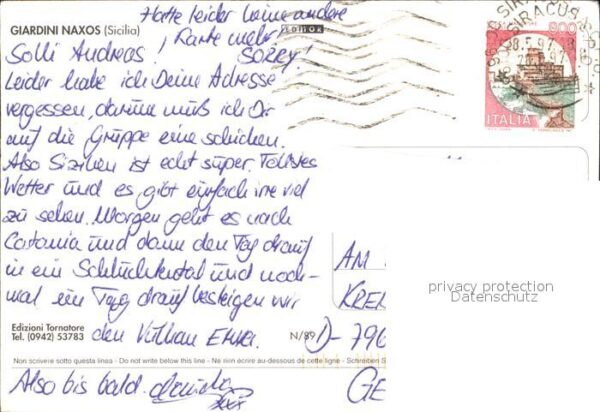 Hatte leider keine andere
Karte mehr!
SORRY!
GIARDINI NAXOS (Sicilia)
Solli Andreas!
Leider habe ich Deine Adresse
vergessen, darum muß ich Dir
auf die Gruppe eine schicken.
Also Sizilien ist echt super. Tollstes
Wetter und es gibt einfach irre viel
zu sehen. Morgen geht es nach
Catania und dann den Tag drauf
in ein Schluchtental und noch-
mal ein Tag drauf besteigen wir
den Vulkan Etna.
Edizioni Tornatore
Tel. (0942) 53783
N/89
Non scrivere sotto questa linea - Do not write below this line - Ne rien écrire au-dessous de cette ligne - Schreiben S
Also bis bald.
800
ITALIA
SIRACUSA
AM
KRE
D-796
GE
privacy protection
Datenschutz